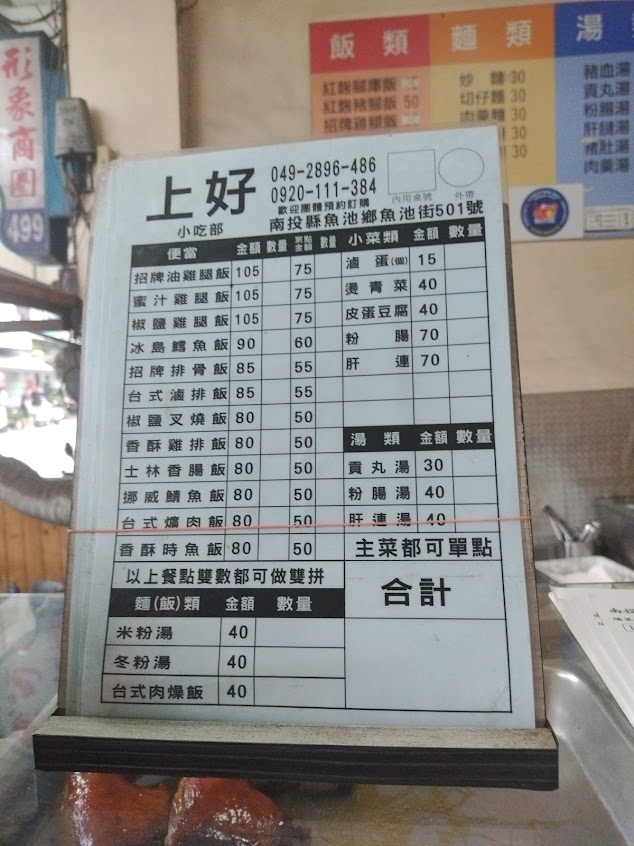 形象商圈
499
飯類 麵類 湯
紅麴豬腳飯 50
招牌雞腿飯
炒麵 30
切仔麵 30
肉羹麵 30
30
30
豬血湯
貢丸湯
粉腸湯
肝鏈湯
豬肚湯
肉羹湯
上好
小吃部
049-2896-486
0920-111-384
歡迎團體預約訂購
內用桌號 外帶
南投縣魚池鄉魚池街501號
便當 金額 數量 單點金額 數量
招牌油雞腿飯 105 75
蜜汁雞腿飯 105 75
椒鹽雞腿飯 105 75
冰島鱈魚飯 90 60
招牌排骨飯 85 55
台式滷排飯 85 55
椒鹽叉燒飯 80 50
香酥雞排飯 80 50
士林香腸飯 80 50
挪威鯖魚飯 80 50
台式爌肉飯 80 50
香酥時魚飯 80 50
以上餐點雙數都可做雙拼
麵(飯)類 金額 數量
米粉湯 40
冬粉湯 40
台式肉燥飯 40
小菜類 金額 數量
滷蛋(個) 15
燙青菜 40
皮蛋豆腐 40
粉腸 70
肝連 70
湯類 金額 數量
貢丸湯 30
粉腸湯 40
肝連湯 40
主菜都可單點
合計